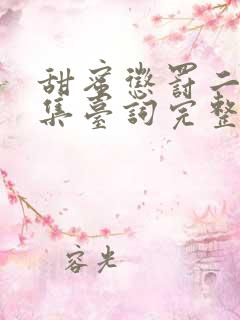 甜蜜懲罰二
集臺詞完整
容光